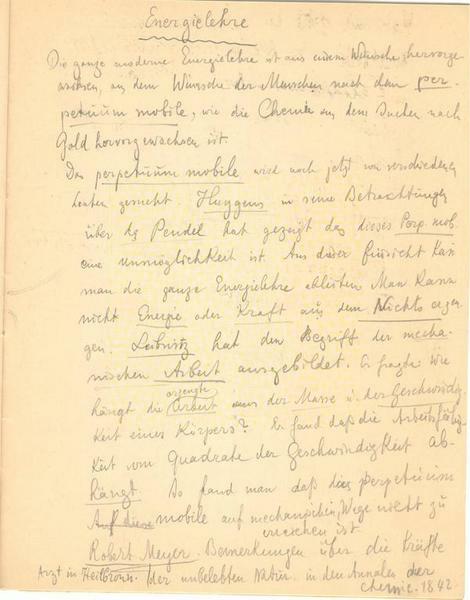 Energielehre
Die ganze moderne Energielehre ist aus einem Wunsche hervorge
wachsen, aus dem Wunsche der Menschen nach dem per-
petuum mobile, wie die Chemie aus dem Suchen nach
Gold hervorgewachsen ist.
Das perpetuum mobile wird noch jetzt von verschiedenen
Leuten gesucht. Huygens in seine Betrachtungen
über das Pendel hat gezeigt das dieses Perp. mob.
eine unmöglichkeit ist. Aus dieser Einsicht kan
man die ganze Energielehre ableiten Man kann
nicht Energie oder Kraft aus dem Nichts erzeu
gen. Leibnitz hat den Begriff der mecha-
nischen Arbeit ausgebildet. Er fragte: Wie
erzeugte
hängt die Arbeit aus der Masse u. der Geschwindig-
keit eines Körpers? Er fand daß die Arbeitsfähig-
keit vom Quadrate der Geschwindigkeit ab-
hängt So fand man daß das perpetuum
Auf diese mobile auf mechanischen Wege nicht zu
erreichen ist
Robert Meyer. Bemerkungen über die Kräfte
Arzt in Heilbronn. der unbelebten Natur. in den Annalen der
Chemie. 1842